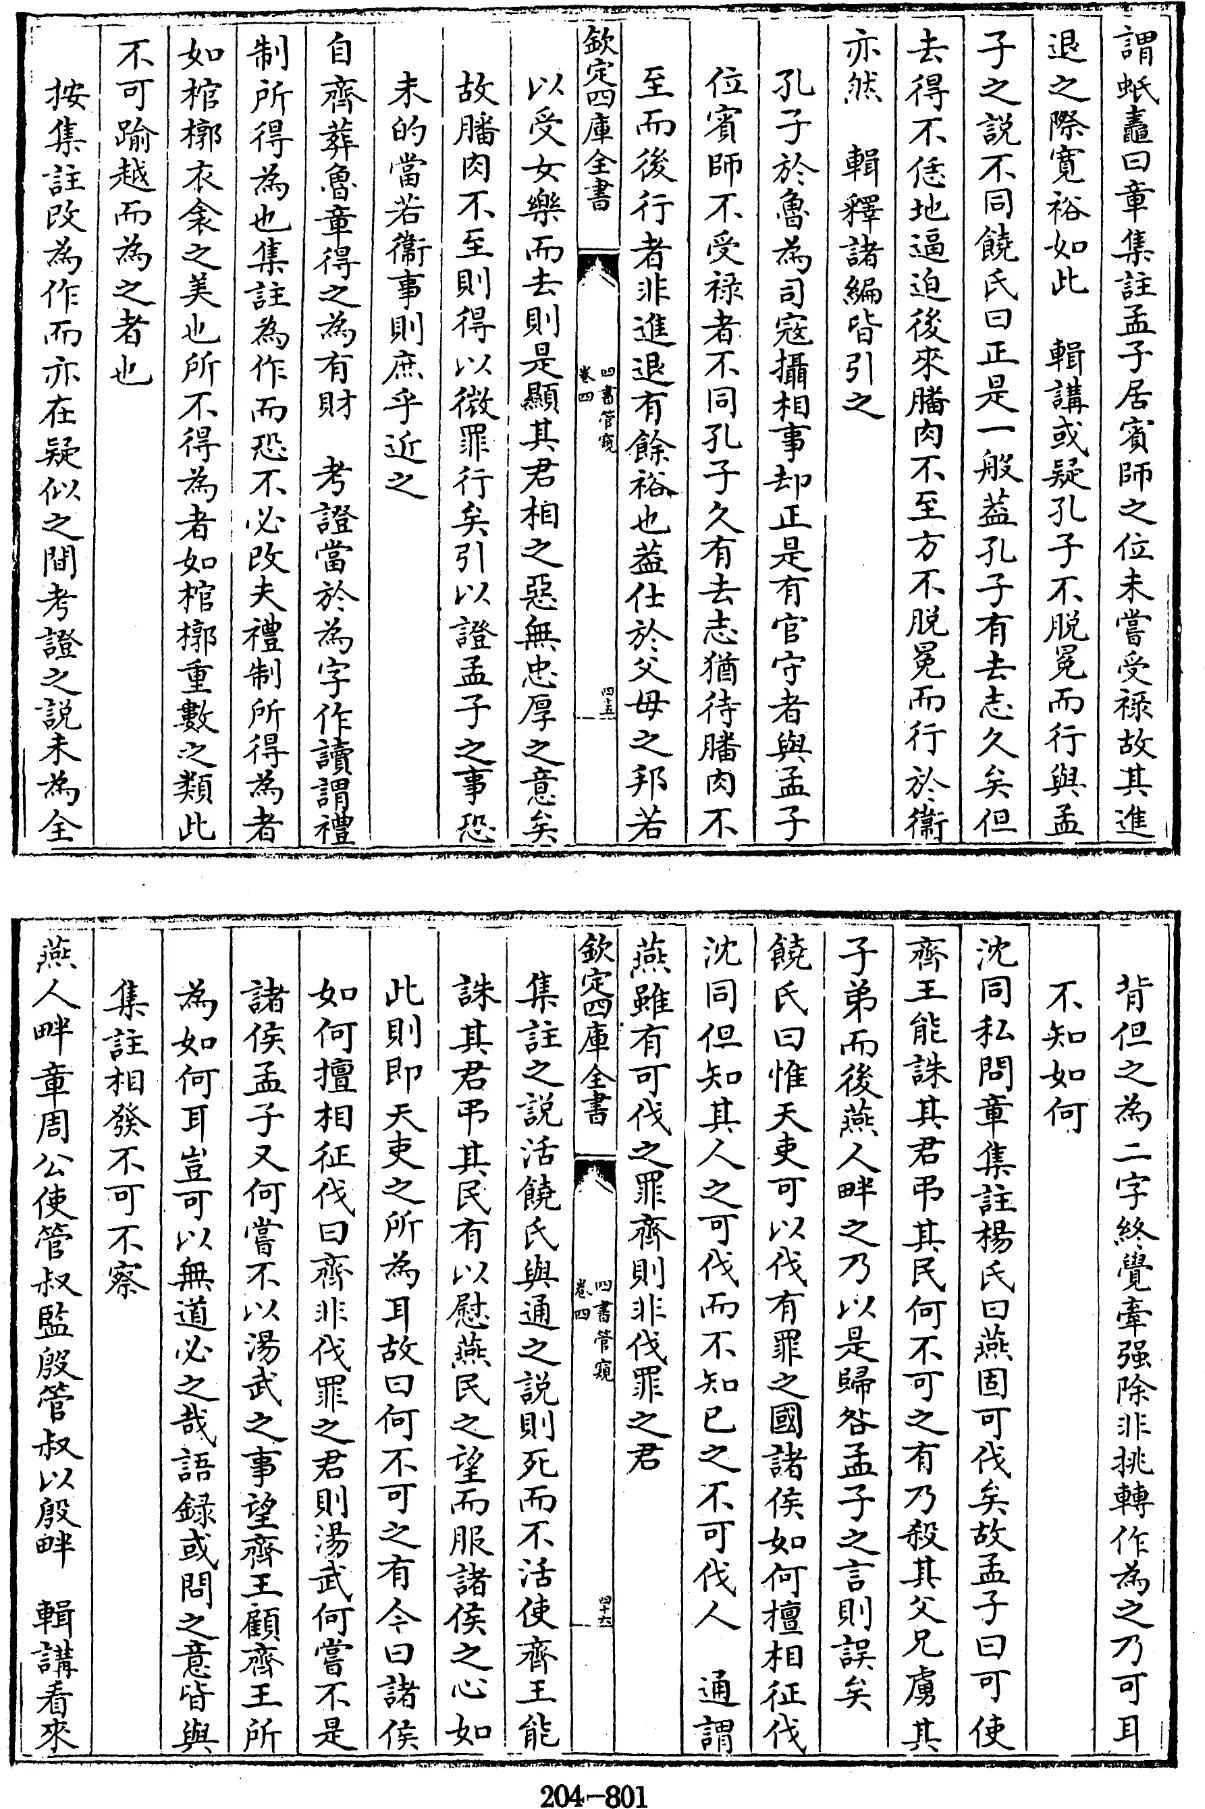 謂蚳鼃曰章集註孟子居賓師之位未嘗受祿故其進
退之際寛裕如此　輯講或疑孔子不脱冕而行與孟
子之説不同饒氏曰正是一般葢孔子有去志久矣但
去得不恁地逼迫後來膰肉不至方不脱冕而行於衞
亦然　輯釋諸編皆引之
孔子於魯為司寇攝相事却正是有官守者與孟子
位賓師不受祿者不同孔子久有去志猶待膰肉不
至而後行者非進退有餘裕也葢仕於父母之邦若
欽定四庫全書
四書管窺
卷四
四十五
以受女樂而去則是顯其君相之惡無忠厚之意矣
故膰肉不至則得以微罪行矣引以證孟子之事恐
未的當若衞事則庶乎近之
自齊葬魯章得之為有財　考證當於為字作讀謂禮
制所得為也集註為作而恐不必改夫禮制所得為者
如棺槨衣衾之美也所不得為者如棺槨重數之類此
不可踰越而為之者也
按集註改為作而亦在疑似之間考證之説未為全
背但之為二字終覺牽强除非挑轉作為之乃可耳
不知如何
沈同私問章集註楊氏曰燕固可伐矣故孟子曰可使
齊王能誅其君弔其民何不可之有乃殺其父兄虜其
子弟而後燕人畔之乃以是歸咎孟子之言則誤矣
饒氏曰惟天吏可以伐有罪之國諸侯如何擅相征伐
沈同但知其人之可伐而不知已之不可伐人　通謂
燕雖有可伐之罪齊則非伐罪之君
欽定四庫全書
四書管窺
卷四
四十六
集註之説活饒氏與通之説則死而不活使齊王能
誅其君弔其民有以慰燕民之望而服諸侯之心如
此則即天吏之所為耳故曰何不可之有今曰諸侯
如何擅相征伐曰齊非伐罪之君則湯武何嘗不是
諸侯孟子又何嘗不以湯武之事望齊王顧齊王所
為如何耳豈可以無道必之哉語録或問之意皆與
集註相發不可不察
燕人畔章周公使管叔監殷管叔以殷畔　輯講看來
204-801